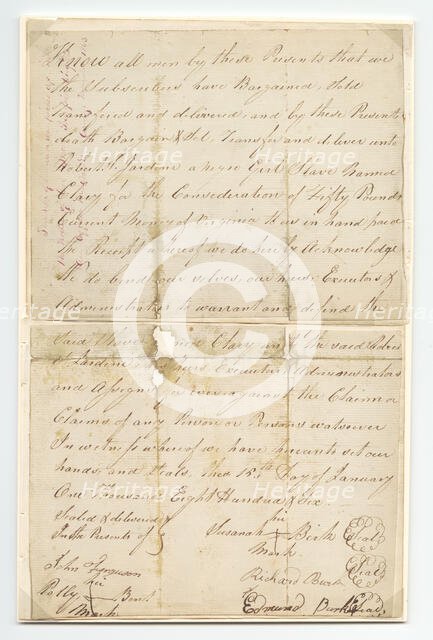 Know all men by these Presents that we
the Subscribers have Bargained, Sold
Transfered and delivered, and by these Presents
doath Bargain & Sel, Transfer and deliver unto
Robert Jardone a negro Girl Slave Named
Clary for the Consideration of Fifty Pounds
Current Money of Virginia to us in hand paid
the Receipt whereof we do hereby Acknowledge
We do bind our selves, our heirs Executors &
Administrators to warrant and defend the
Said negro Clary unto the said
Jardone heirs Executors Administrators
and Assigns for ever against the Claim or
Claims of any Person or Persons watsoever
In witness whereof we have hereunto set our
hands and Seals, this 15th Day of January
One Thousand Eight Hundred & Six
Sealed & delivered
In the Presents of
her
Susanah Birk Seal
Mark
Richard Seal
Edmund Seal
John Ferguson
her
Polly
Mark
Heritage
Images